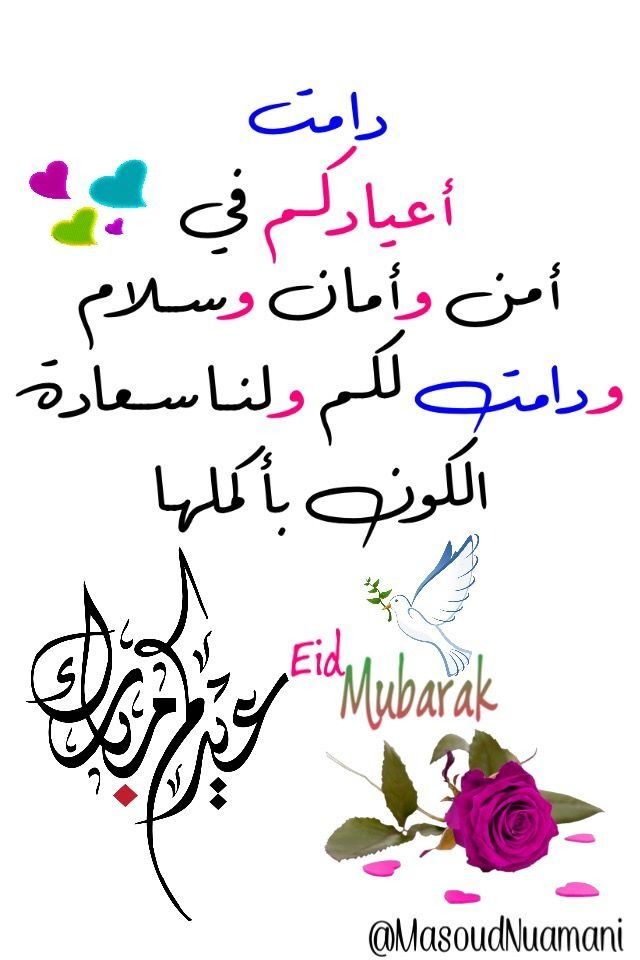 دامت
أعيادكم في
أمن وأمان وسلام
ودامت لكم ولنا سعادة
الكون بأكملها
عيدكم مبارك
Eid
Mubarak
@MasoudNuamani